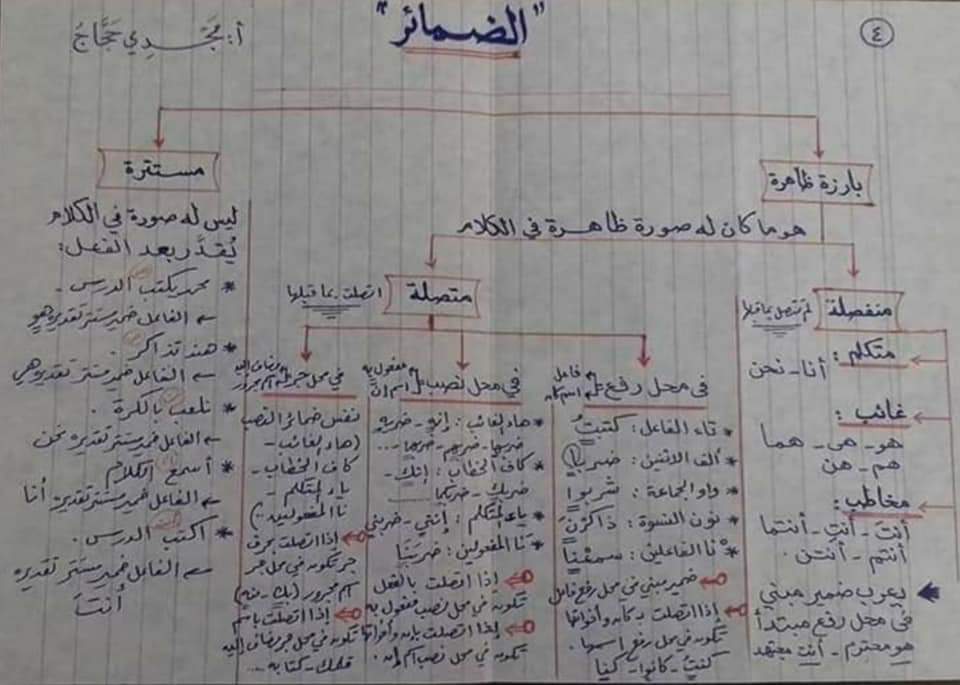 ٤
"الضمائر"
أ: مَجْدِي حَجَّاجْ
بارزة ظاهرة
هو ما كان له صورة ظاهرة في الكلام
منفصلة
لم تتصل بما قبلها
متكلم:
أنا - نحن
غائب:
هو - هى - هما
هم - هن
مخاطب:
أنتَ - أنتِ - أنتما
أنتم - أنتن.
يعرب ضمير مبني
في محل رفع مبتدأ
هو محترم - أنت مجتهد
متصلة
اتصلت بما قبلها
فى محل رفع
فاعل
اسم كان
* تاء الفاعل: كتبتُ
* ألف الاثنين: ضربا
* واو الجماعة: شربوا
* نون النسوة: ذاكرْنَ
* نا الفاعلين: سمعْنا
ضمير مبني في محل رفع فاعل
إذا اتصلت بـ كان وأخواتها
تكون في محل رفع اسمها.
كنتُ - كانوا - كنا
في محل نصب
مفعول به
اسم إن
* هاء الغائب: إنه - ضربه
ضربها - ضربهم - ضربهما ...
* كاف الخطاب: إنك -
ضربك - ضربكما
* ياء المتكلم: إنني - ضربني
* نا المفعولين: ضربَنا
إذا اتصلت بالفعل
تكون في محل نصب مفعول به
إذا اتصلت بإن وأخواتها
تكون في محل نصب اسم إن.
في محل جر
مضاف إليه
اسم مجرور
نفس ضمائر النصب
(هاء الغائب -
كاف الخطاب -
ياء المتكلم -
نا المفعولين)
إذا اتصلت بحرف
جر تكون في محل جر
اسم مجرور (بك -
إذا اتصلت باسم
تكون في محل جر مضاف إليه
قلمك - كتابه ...
مستترة
ليس له صورة في الكلام
يُقدَّر بعد الفعل:
* محمد يكتب الدرس -
الفاعل ضمير مستتر تقديره هو
* هند تذاكر.
الفاعل ضمير مستتر تقديره هي
* نلعب بالكرة.
الفاعل ضمير مستتر تقديره نحن
* أسمع الكلام
الفاعل ضمير مستتر تقديره أنا
* اكتب الدرس.
الفاعل ضمير مستتر تقديره
أنتَ